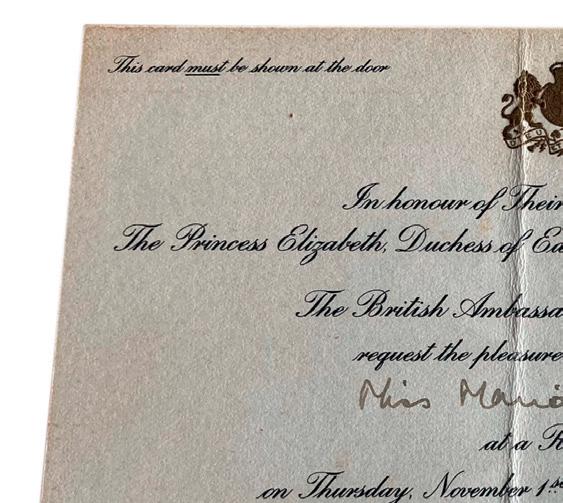 This card must be shown at the door
In honour of Their
The Princess Elizabeth, Duchess of
The British
request the pleasure
Miss
at a
on Thursday, November 1st